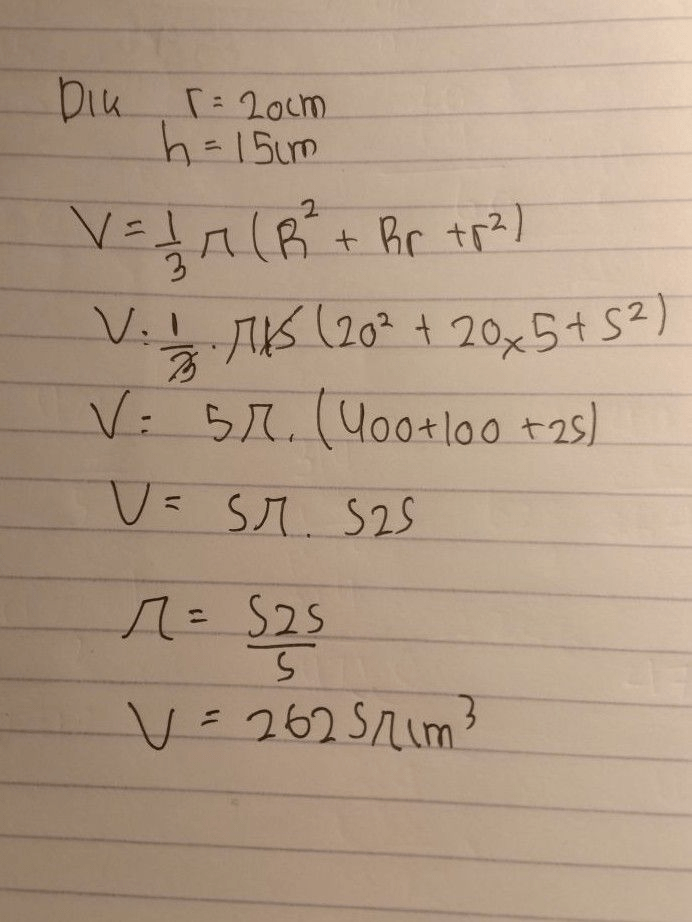 Dik r = 20cm
h = 15cm
V = 1/3 π (R² + Rr + r²)
V : 1/3 . π 15 (20² + 20 x 5 + 5²)
V = 5π. (400 + 100 + 25)
V = 5π. 525
π = 525/5
V = 2625π cm³